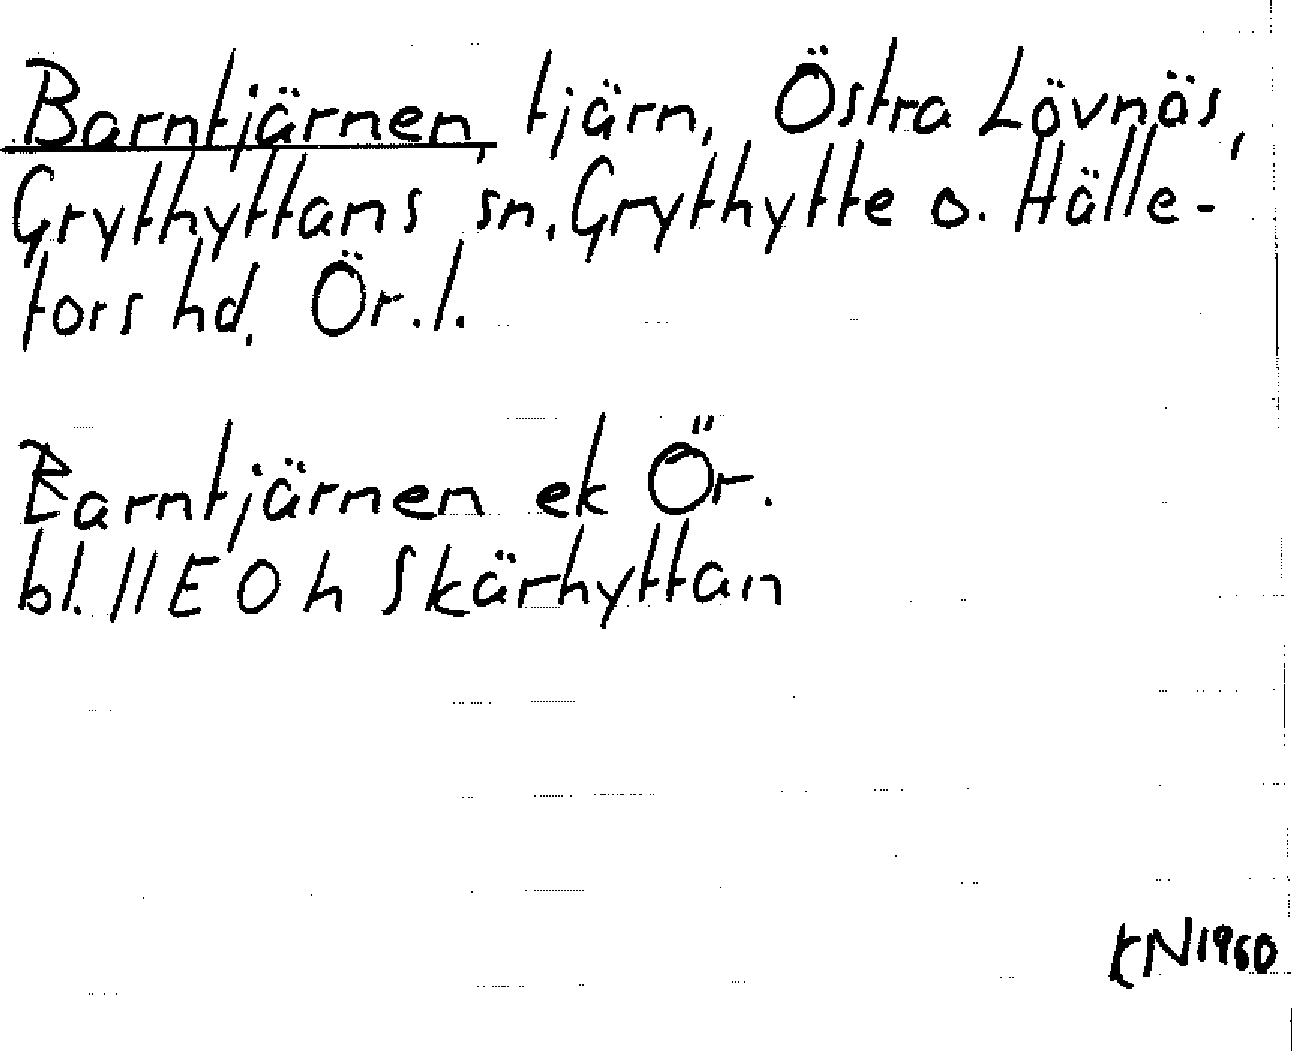 Barntjärnen, tjärn, Östra Lövnäs,
Grythyttans sn. Grythytte o. Hälle-
fors hd. Ör. l.
Barntjärnen ek Ör.
bl. 11 E O h Skärhyttan
KN 1960